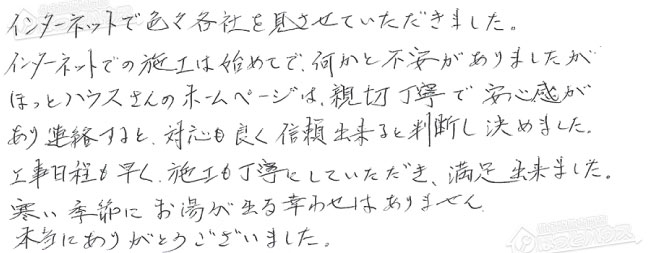 インターネットで色々各社を見させていただきました。
インターネットでの施工は始めてで、何かと不安がありましたが
ほっとハウスさんのホームページは、親切丁寧で安心感が
あり連絡すると、対応も良く信頼出来ると判断し決めました。
工事日程も早く、施工も丁寧にしていただき、満足出来ました。
寒い季節にお湯が出る幸わせはありません。
本当にありがとうございました。